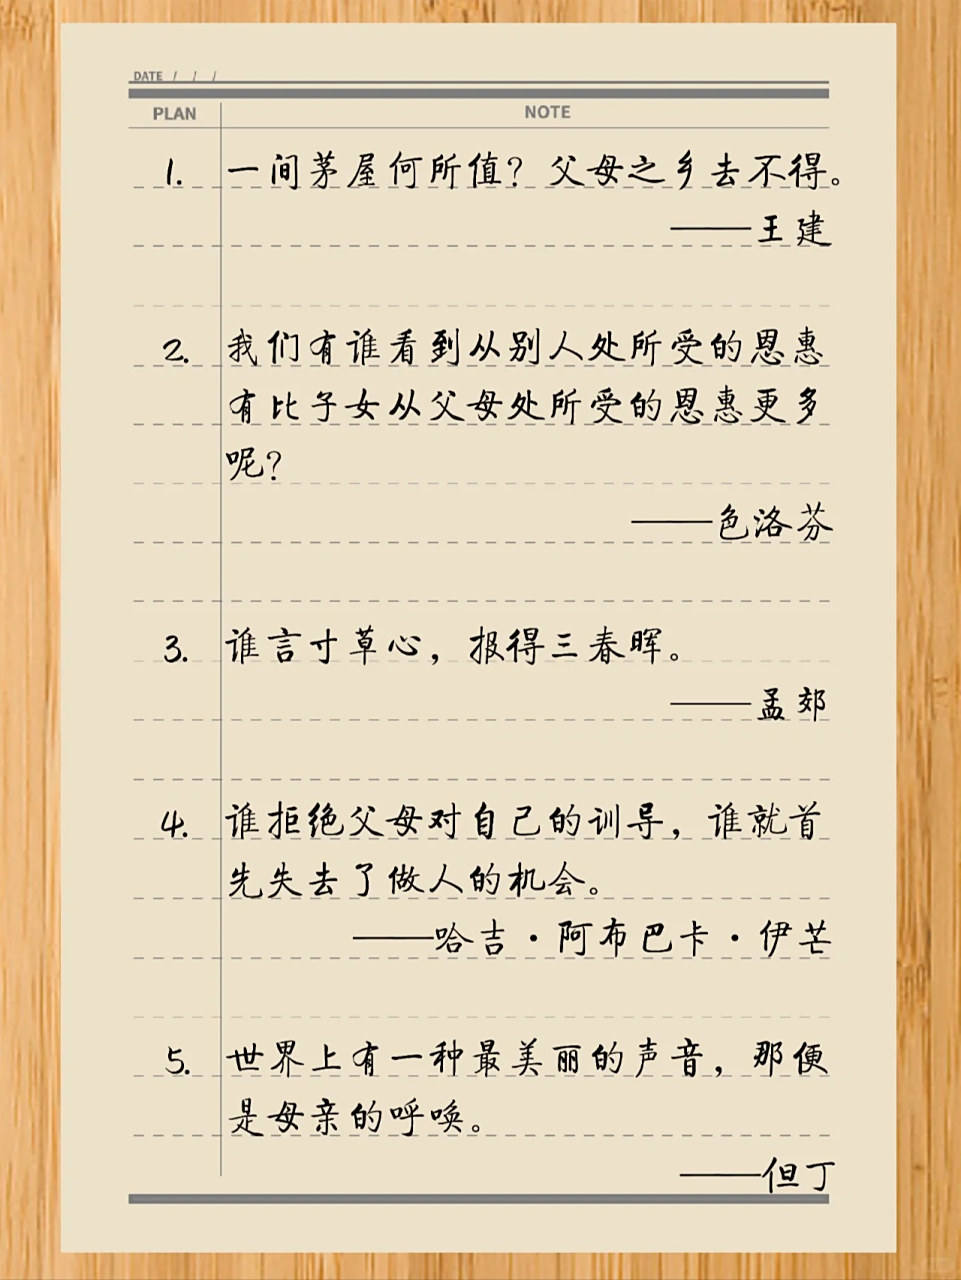 DATE / / /
PLAN NOTE
1. 一间茅屋何所值？父母之乡去不得。
——王建
2. 我们有谁看到从别人处所受的恩惠
有比子女从父母处所受的恩惠更多
呢？
——色洛芬
3. 谁言寸草心，报得三春晖。
——孟郊
4. 谁拒绝父母对自己的训导，谁就首
先失去了做人的机会。
——哈吉·阿布巴卡·伊芒
5. 世界上有一种最美丽的声音，那便
是母亲的呼唤。
——但丁